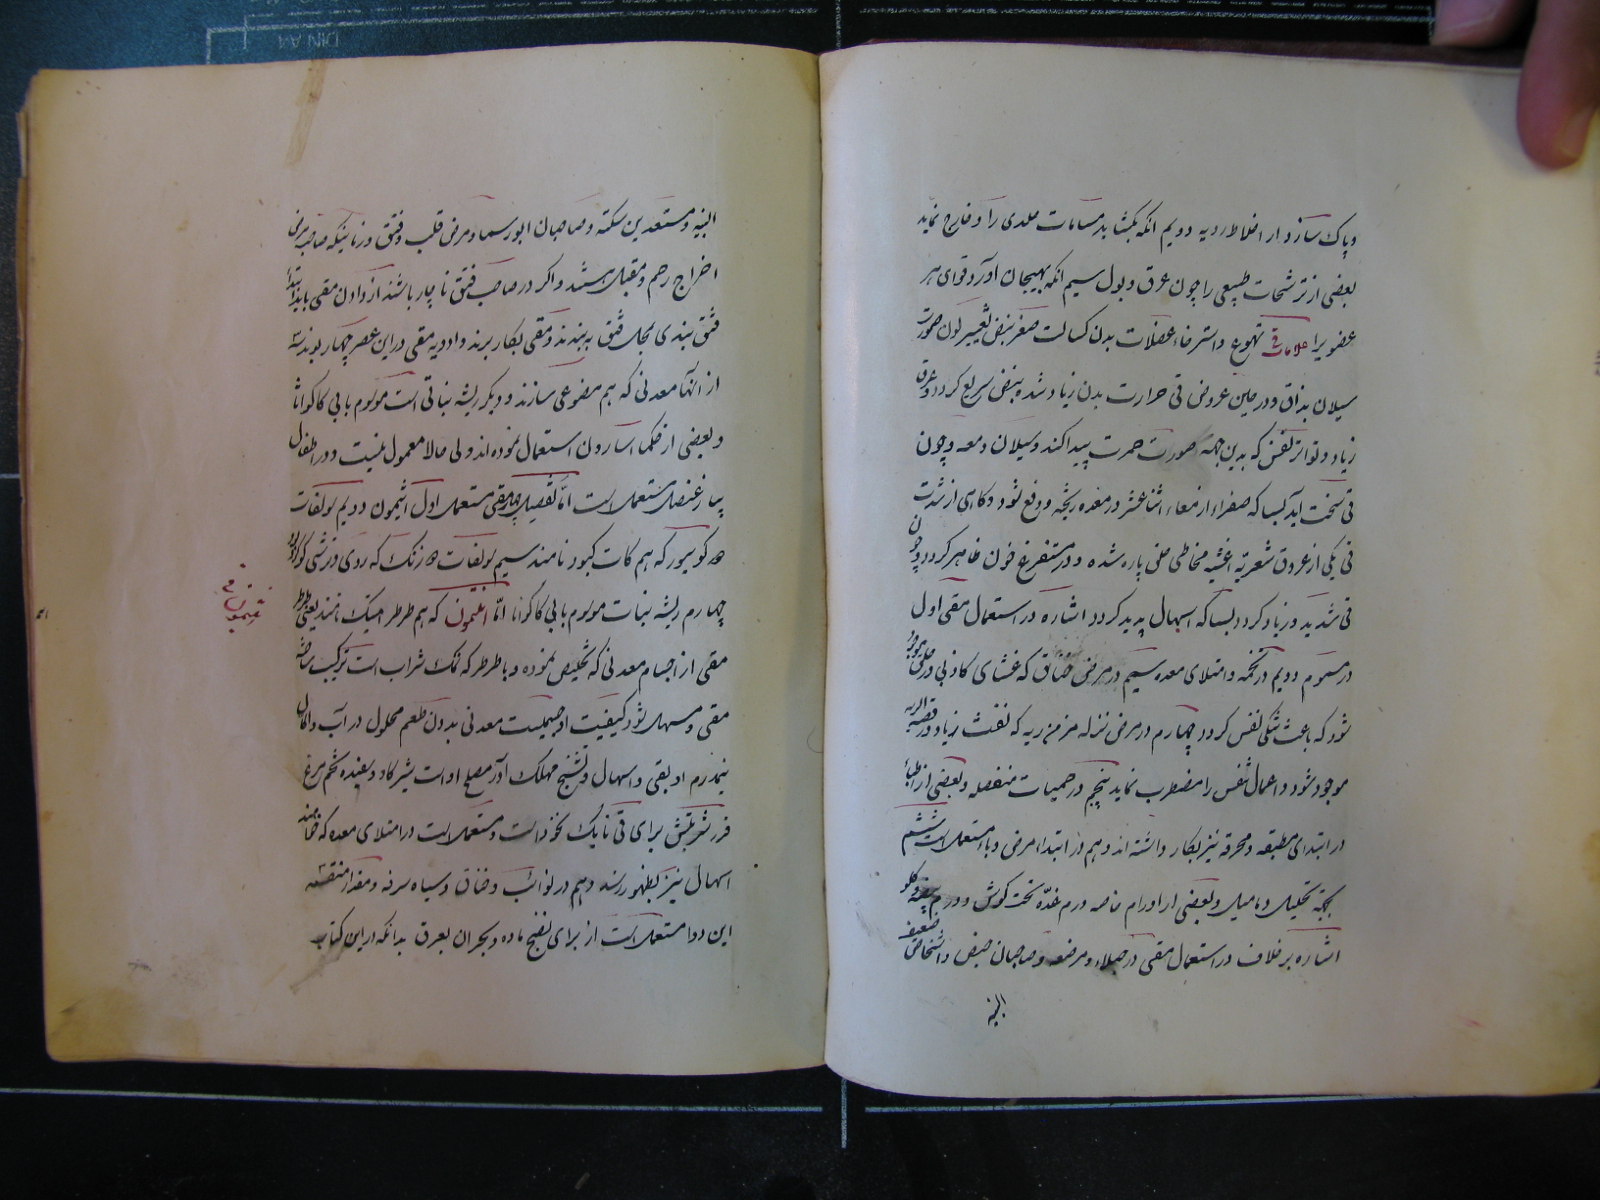 و پاک سازد از اخلاط ردیه دویم آنکه بکشاید مسامات جلدی را و خارج نماید
بعضی از ترشحات طبیعی را چون عرق و بول سیم آنکه بهیجان آورد قوای هر
عضویرا علامات قی تهوع و استرخاء عضلات بدن کسالت صغر نبض تغییر لون صورت
سیلان بذاق و در حین عروض قی حرارت بدن زیاد شده نبض سریع کردد و عرق
زیاد و تواتر نفس که بدین جهة صورت حمرت پیدا کند و سیلان دمعه و چون
قی سخت آید بسا که صفراء از معاء اثنا عشر در معده ریخته و دفع شود و کاهی از شدت
قی یکی از عروق شعریه اغشیه مخاطی حلق پاره شده و در مستفرغ خون ظاهر کردد و چون
قی شدید و زیاد کردد بسا که اسهال پدید کردد اشاره در استعمال مقی اول
در مسموم دویم در تخمه و امتلای معده سیم در مرض خناق که غشای کاذبی در حلق موجود
شود که باعث تنکی نفس کردد چهارم در مرض نزله مزمن ریه که نفث زیاد در قصبة الریه
موجود شود و اعمال تنفس را مضطرب نماید پنجم در حمیات منفصله و بعضی از اطباء
در ابتدای مطبقه و محرقه نیز بکار داشته اند و هم در ابتداء مرض وبا مستعمل است ششم
بجهة تحلیل دمامیل و بعضی از اورام خاصه ورم غده تحت کوش و ورم بیضه و کلو
اشاره بر خلاف در استعمال مقی در حبلاء و مرضعه و صاحبان حیض و اشخاص ضعیف
البنیه
البنیه و مستعدین سکته و صاحبان ابورسما و مرض قلب و فتق و زنانیکه صاحب مرض
اخراج رحم و مقبل هستند و اکر در صاحب فتق ناچار باشند از دادن مقی باید ابتداء
فتق بندی بمحل فتق به بندند و مقی بکار برند و ادویه مقی در این عصر چهار بوند سه
از آنها معدنی که هم مصنوعی سازند و دیکر ریشه نباتی است موسوم بایی کاکوانا
و بعضی از حکما اسارون استعمال نموده اند ولی حالا معمول نیست و در اطفال
پیاز عنصل مستعمل است اما تفصیل ادویه مقی مستعمل اول انتیمون دویم سولفات
ده کویور که هم کات کبود نامند سیم سولفات ده زنک که روی و زشی کوکرد بود
چهارم ریشه نبات موسوم بایی کاکوانا اما انتیمون که هم طرطر امتیک نامند یعنی طرطر
انتیمون مقی
مقی از اجسام معدنی که تخلیص نموده و با طرطر که نمک شراب است ترکیب ساخته
مقی و مسهل شود کیفیت او جسمیست معدنی بدون طعم محلول در آب و اکال
نیمدرم او بقی و اسهال و تشنج مهلک آورد مصلح او است شیر کاو و سفیده تخم مرغ
قدر شربتش برای قی تا یک نخود است و مستعمل است در امتلای معده که خواهند
اسهال نیز بظهور رسد و هم در نوائب و خناق و سیاه سرفه و مقدار منقسمه
این دوا مستعمل است از برای نضج ماده و بحران بعرق بدانکه در این کتاب